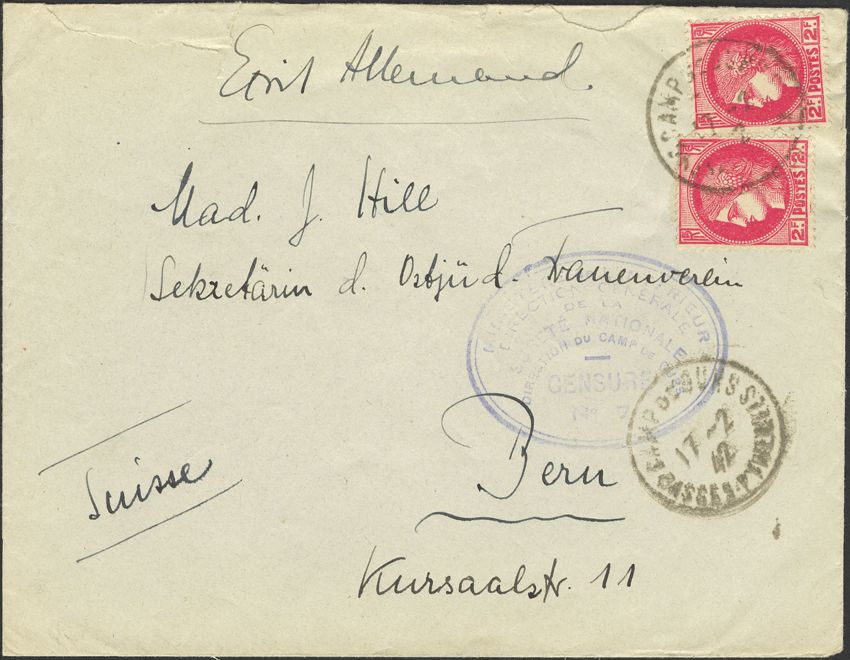 Ecrit Allemand.
2F
POSTES
2F
2F
POSTES
2F
CAMP
17
Mad. J. Hill
Sekretärin d. Ostjüd. Frauenverein
DIRECTION GENERALE
DE LA
SÛRETÉ NATIONALE
DIRECTION DU CAMP DE GURS
CENSURE
N° 7
CAMP DE GURS
17-2
42
BASSES-
Bern
Suisse
Kursaalstr. 11